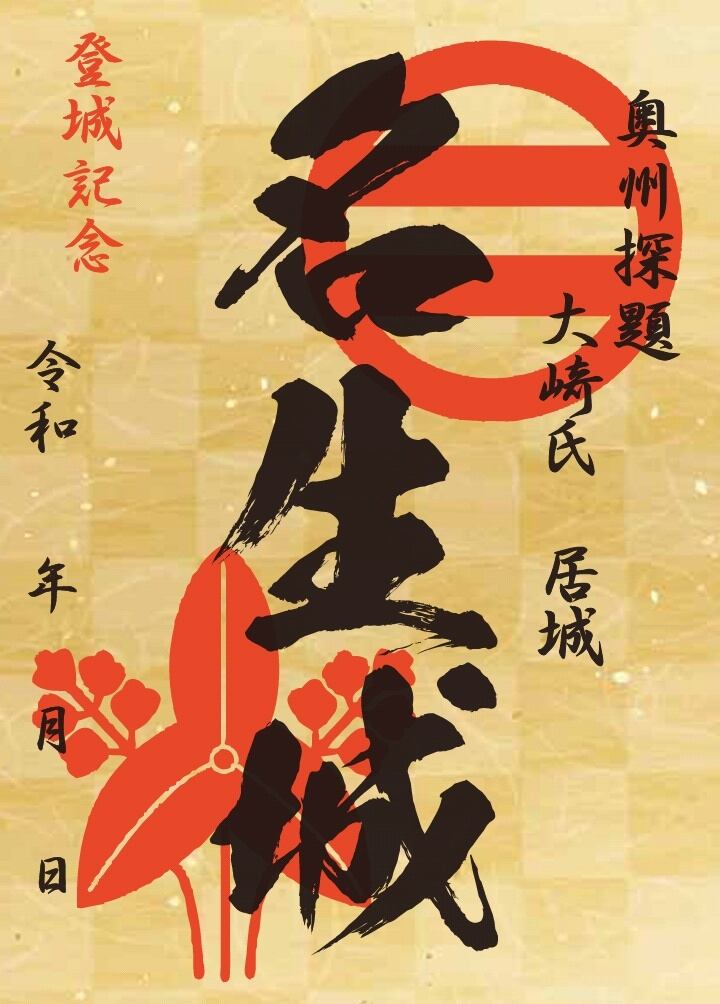 奥州探題
大崎氏 居城
名生城
登城記念
令和 年 月 日